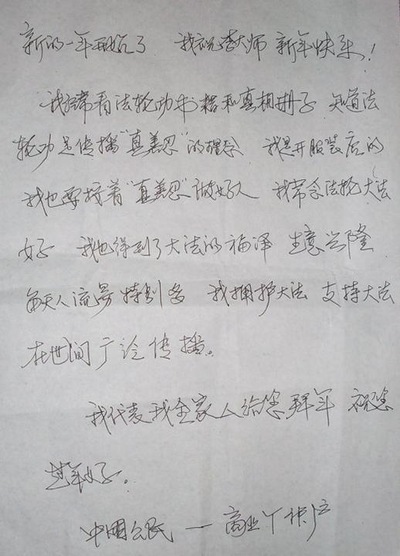 新的一年开始了 我祝李大师 新年快乐！
我经常看法轮功书籍和真相册子 知道法
轮功是传播“真善忍”的理念 我是开服装店的
我也要按着“真善忍”做好人 我常念法轮大法
好 我也得到了大法的福泽 生意兴隆
每天人流量特别多 我拥护大法 支持大法
在世间广泛传播。
我代表我全家人给您拜年 祝您
过年好。
中国公民 — 商业